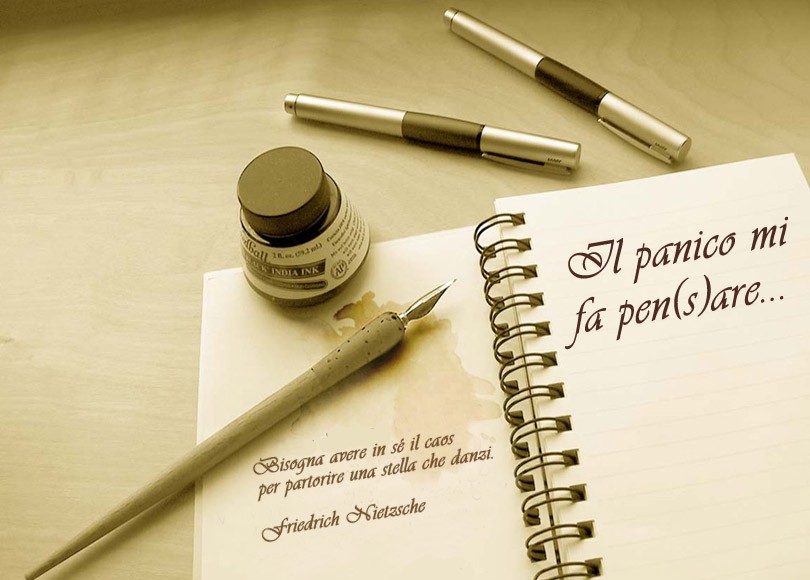 2 fl. oz. (59.2 mL)
BLACK INDIA INK
AP
Il panico mi
fa pen(s)are...
Bisogna avere in sé il caos
per partorire una stella che danzi.
Friedrich Nietzsche